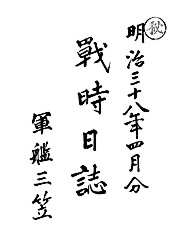 ㊙
明治三十八年四月分
戰時日誌
軍艦三笠